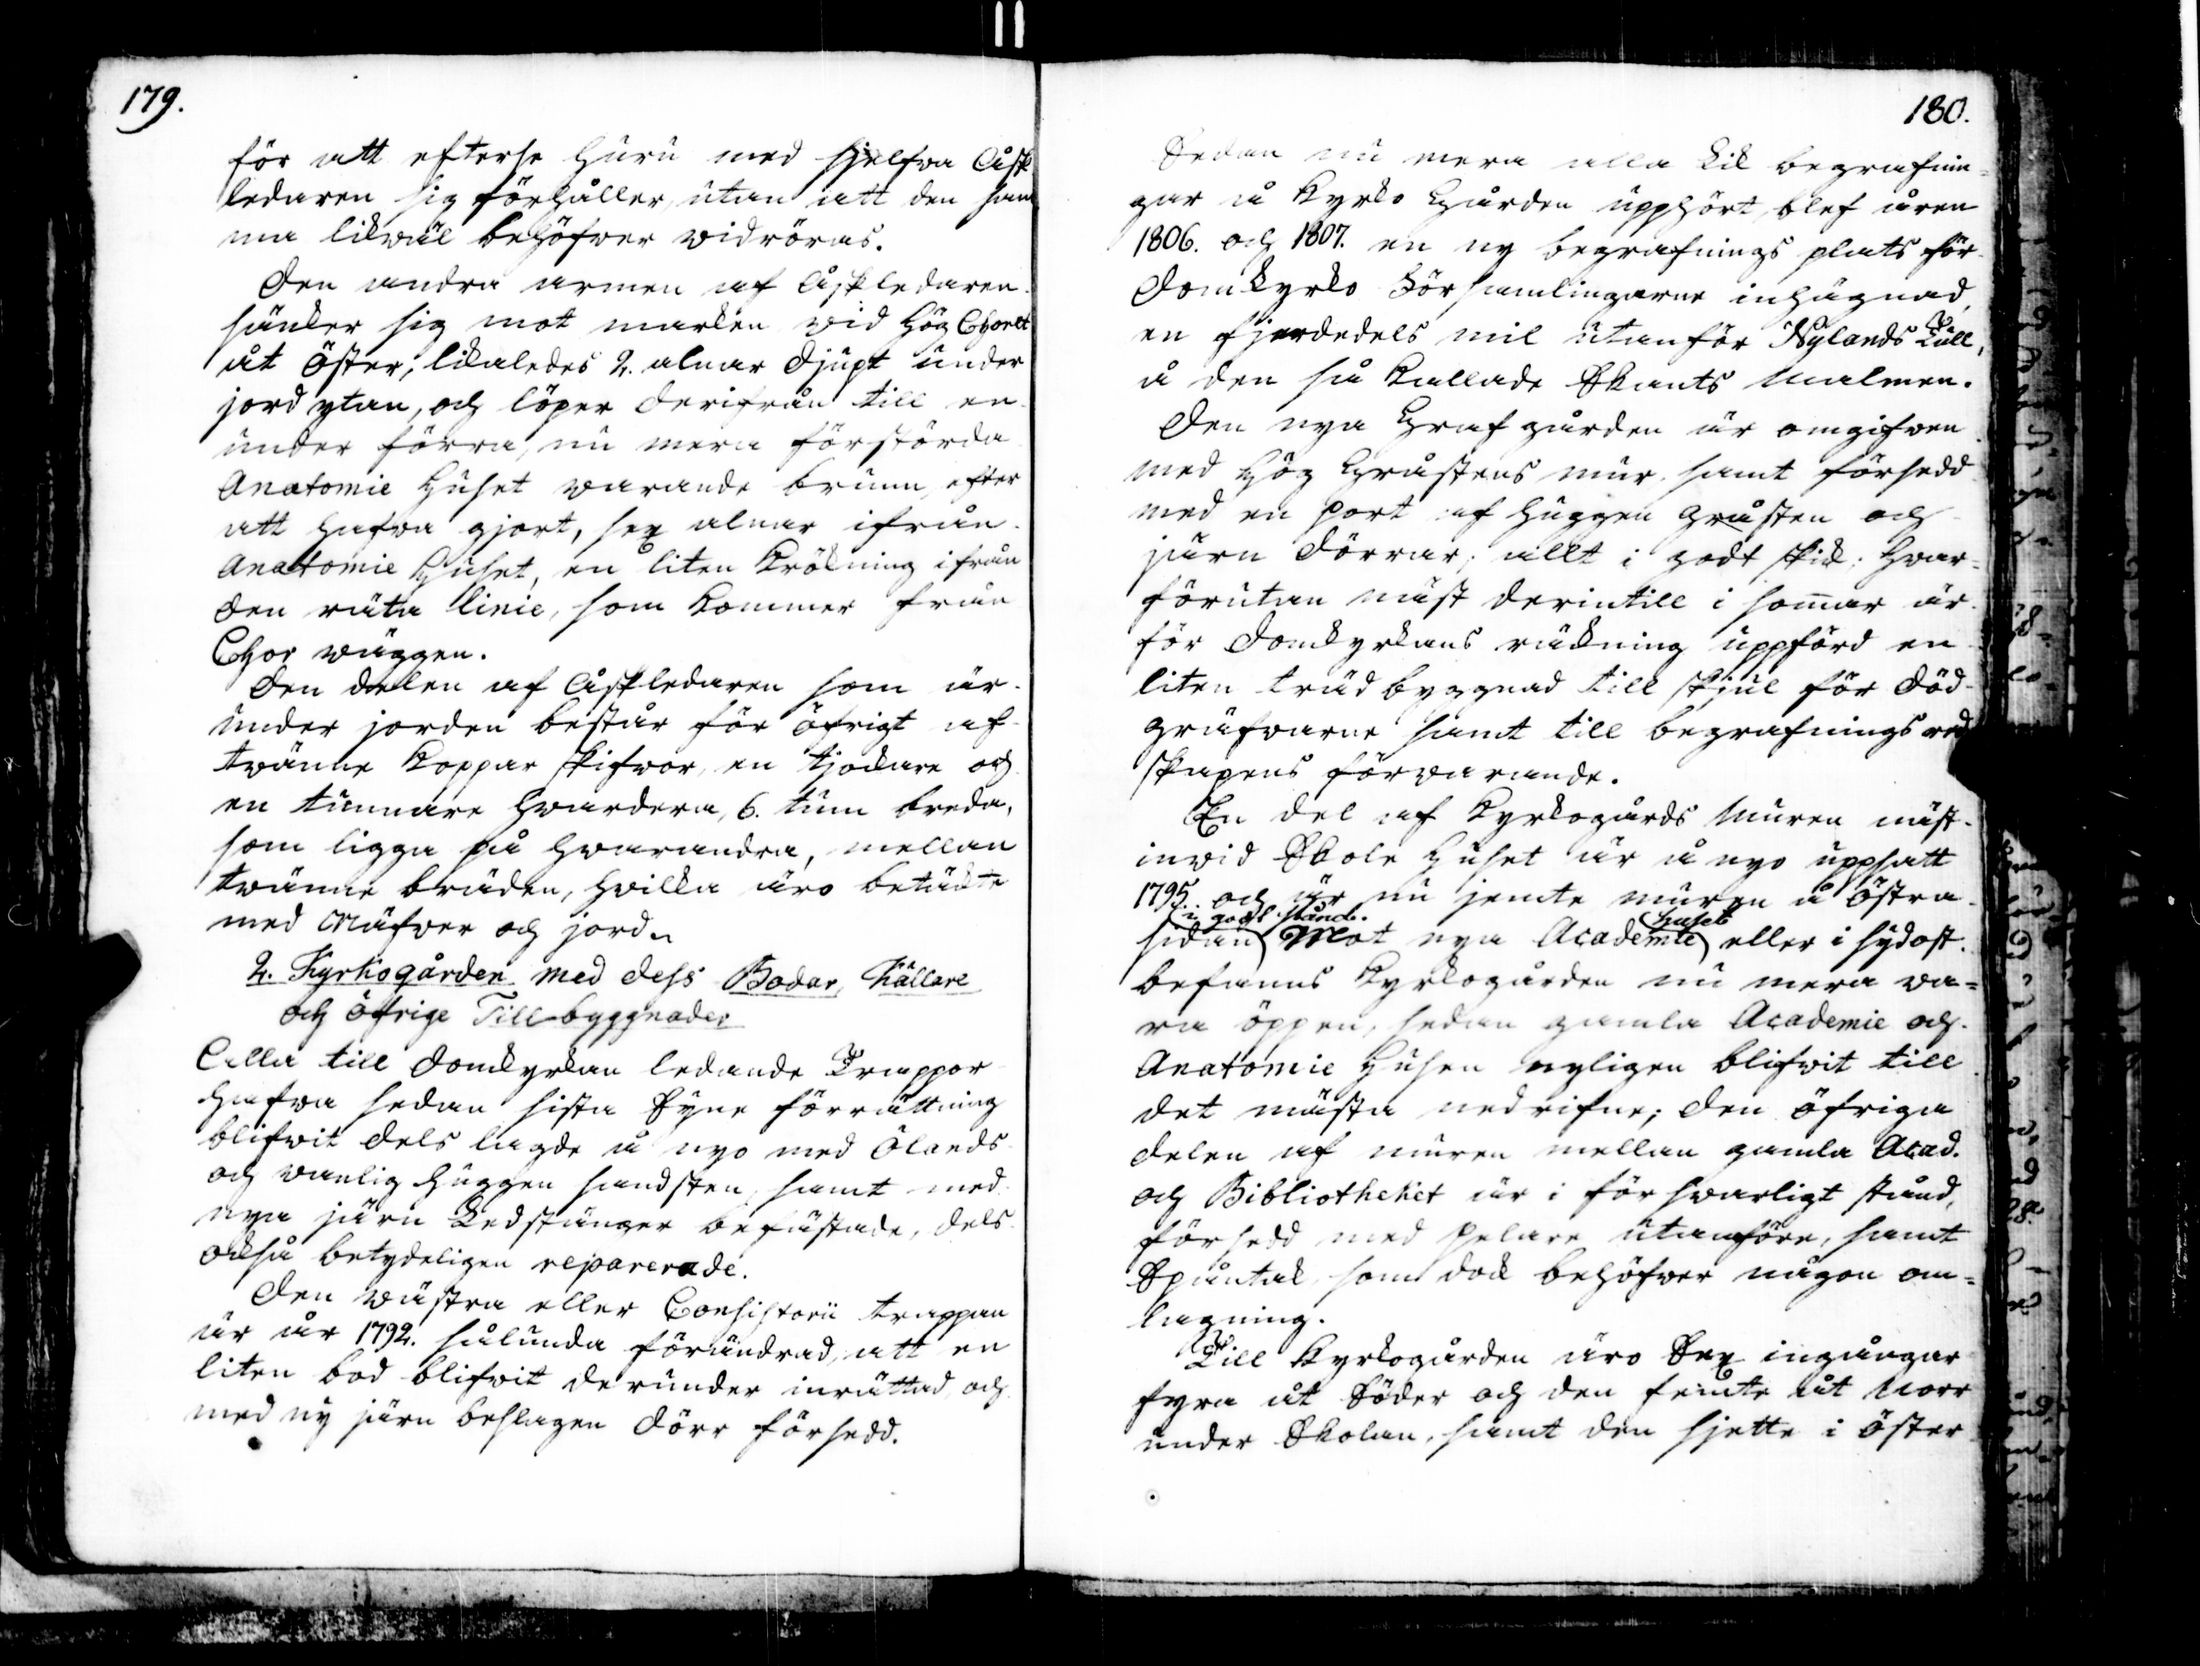 179.
för att efterse huru med sjelfva Åsk
ledaren sig förhåller, utan att den sam
ma likväl behöfver vidröras.
Den andra armen af Åskledaren
sänker sig mot marken vid Hög Choret
åt Öster, likaledes 2. alnar djupt under
jord ytan, och löper derifrån till en
under förra, nu mera förstörda
Anatomie Huset varande brunn, efter
att hafva gjort, sex alnar ifrån
Anatomie Huset, en liten krökning ifrån
den räta linie, som kommer från
Chor väggen.
Den delen af Åskledaren som är
under jorden består för öfrigt af
tvänne koppar skifvor, en tjockare och
en tunnare hvardera, 6. tum breda,
som ligga på hvarandra, mellan
tvänne bräden, hvilka äro betäckte
med Näfver och jord.
2. Kyrkogården med dess Bodar, Källare
och öfrige Till byggnader
Alla till Domkyrkan ledande Trappor
hafva sedan sista Syne förrättning
blifvit dels lagde å nyo med Ölands
och vanlig huggen sandsten, samt med
nya järn Ledstänger befästade, dels
också betydeligen reparerade.
Den västra eller Consistorii trappan
är år 1792. sålunda förändrad, att en
liten bod blifvit derunder inrättad och
med ny järn beslagen dörr försedd.
180.
Sedan nu mera alla Lik begrafnin-
gar å Kyrko Gården upphört, blef åren
1806. och 1807. en ny begrafnings plats för
Domkyrko Församlingarne inhägnad,
en fjerdedels mil utanför Nylands Tull,
å den så kallade Skants Malmen.
Den nya Graf gården är omgifven
med hög Gråstens mur, samt försedd
med en port af huggen gråsten och
järn dörrar, allt i godt skick: hvar-
förutan näst derintill i sommar är
för Domkyrkans räkning uppförd en
liten träd byggnad till skjul för död-
gräfvarne samt till begrafnings red
skapens förvarande.
En del af Kyrkogårds Muren näst
invid Skole Huset är å nyo uppsatt
1795. och är nu jemte muren å östra
i godt stånd. huset
sidan Mot nya Academie eller i sydost.
befanns Kyrkogården nu mera va-
ra öppen, sedan gamla Academie och
Anatomie Husen nyligen blifvit till
det mästa nedrifne; den öfriga
delen af muren mellan gamla Acad.
och Bibliotheket är i försvarligt stånd,
försedd med pelare utanföre, samt
Spåntak, som dock behöfver någon om-
lagning.
Till Kyrkogården äro Sex ingångar
fyra åt Söder och den femte åt Norr
under Skolan, samt den sjette i Öster